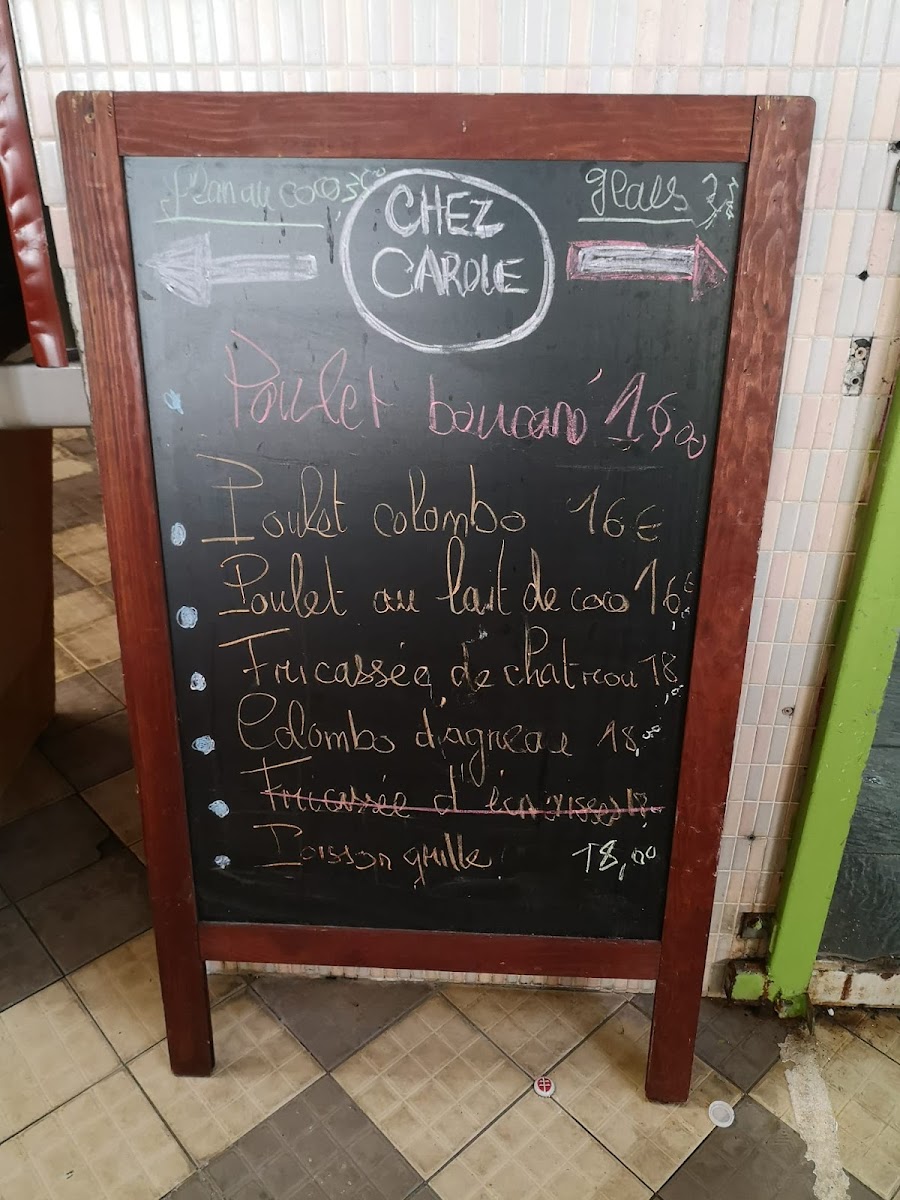 flan au coco
CHEZ
CAROLE
glaces
Poulet boucané 16,00
Poulet colombo 16€
Poulet au lait de coco 16,€
Fricassée de chatrou 18,
Colombo d'agneau 18,00
Fricassée d'écrevisses
Poisson grille 18,00